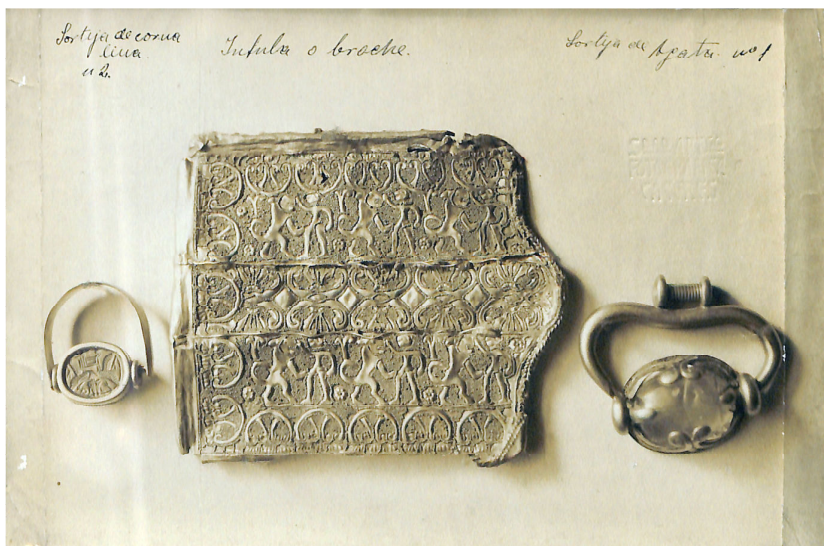 Sortija de corna
lina.
n 2.
Infula o broche.
Sortija de Agata. nº 1